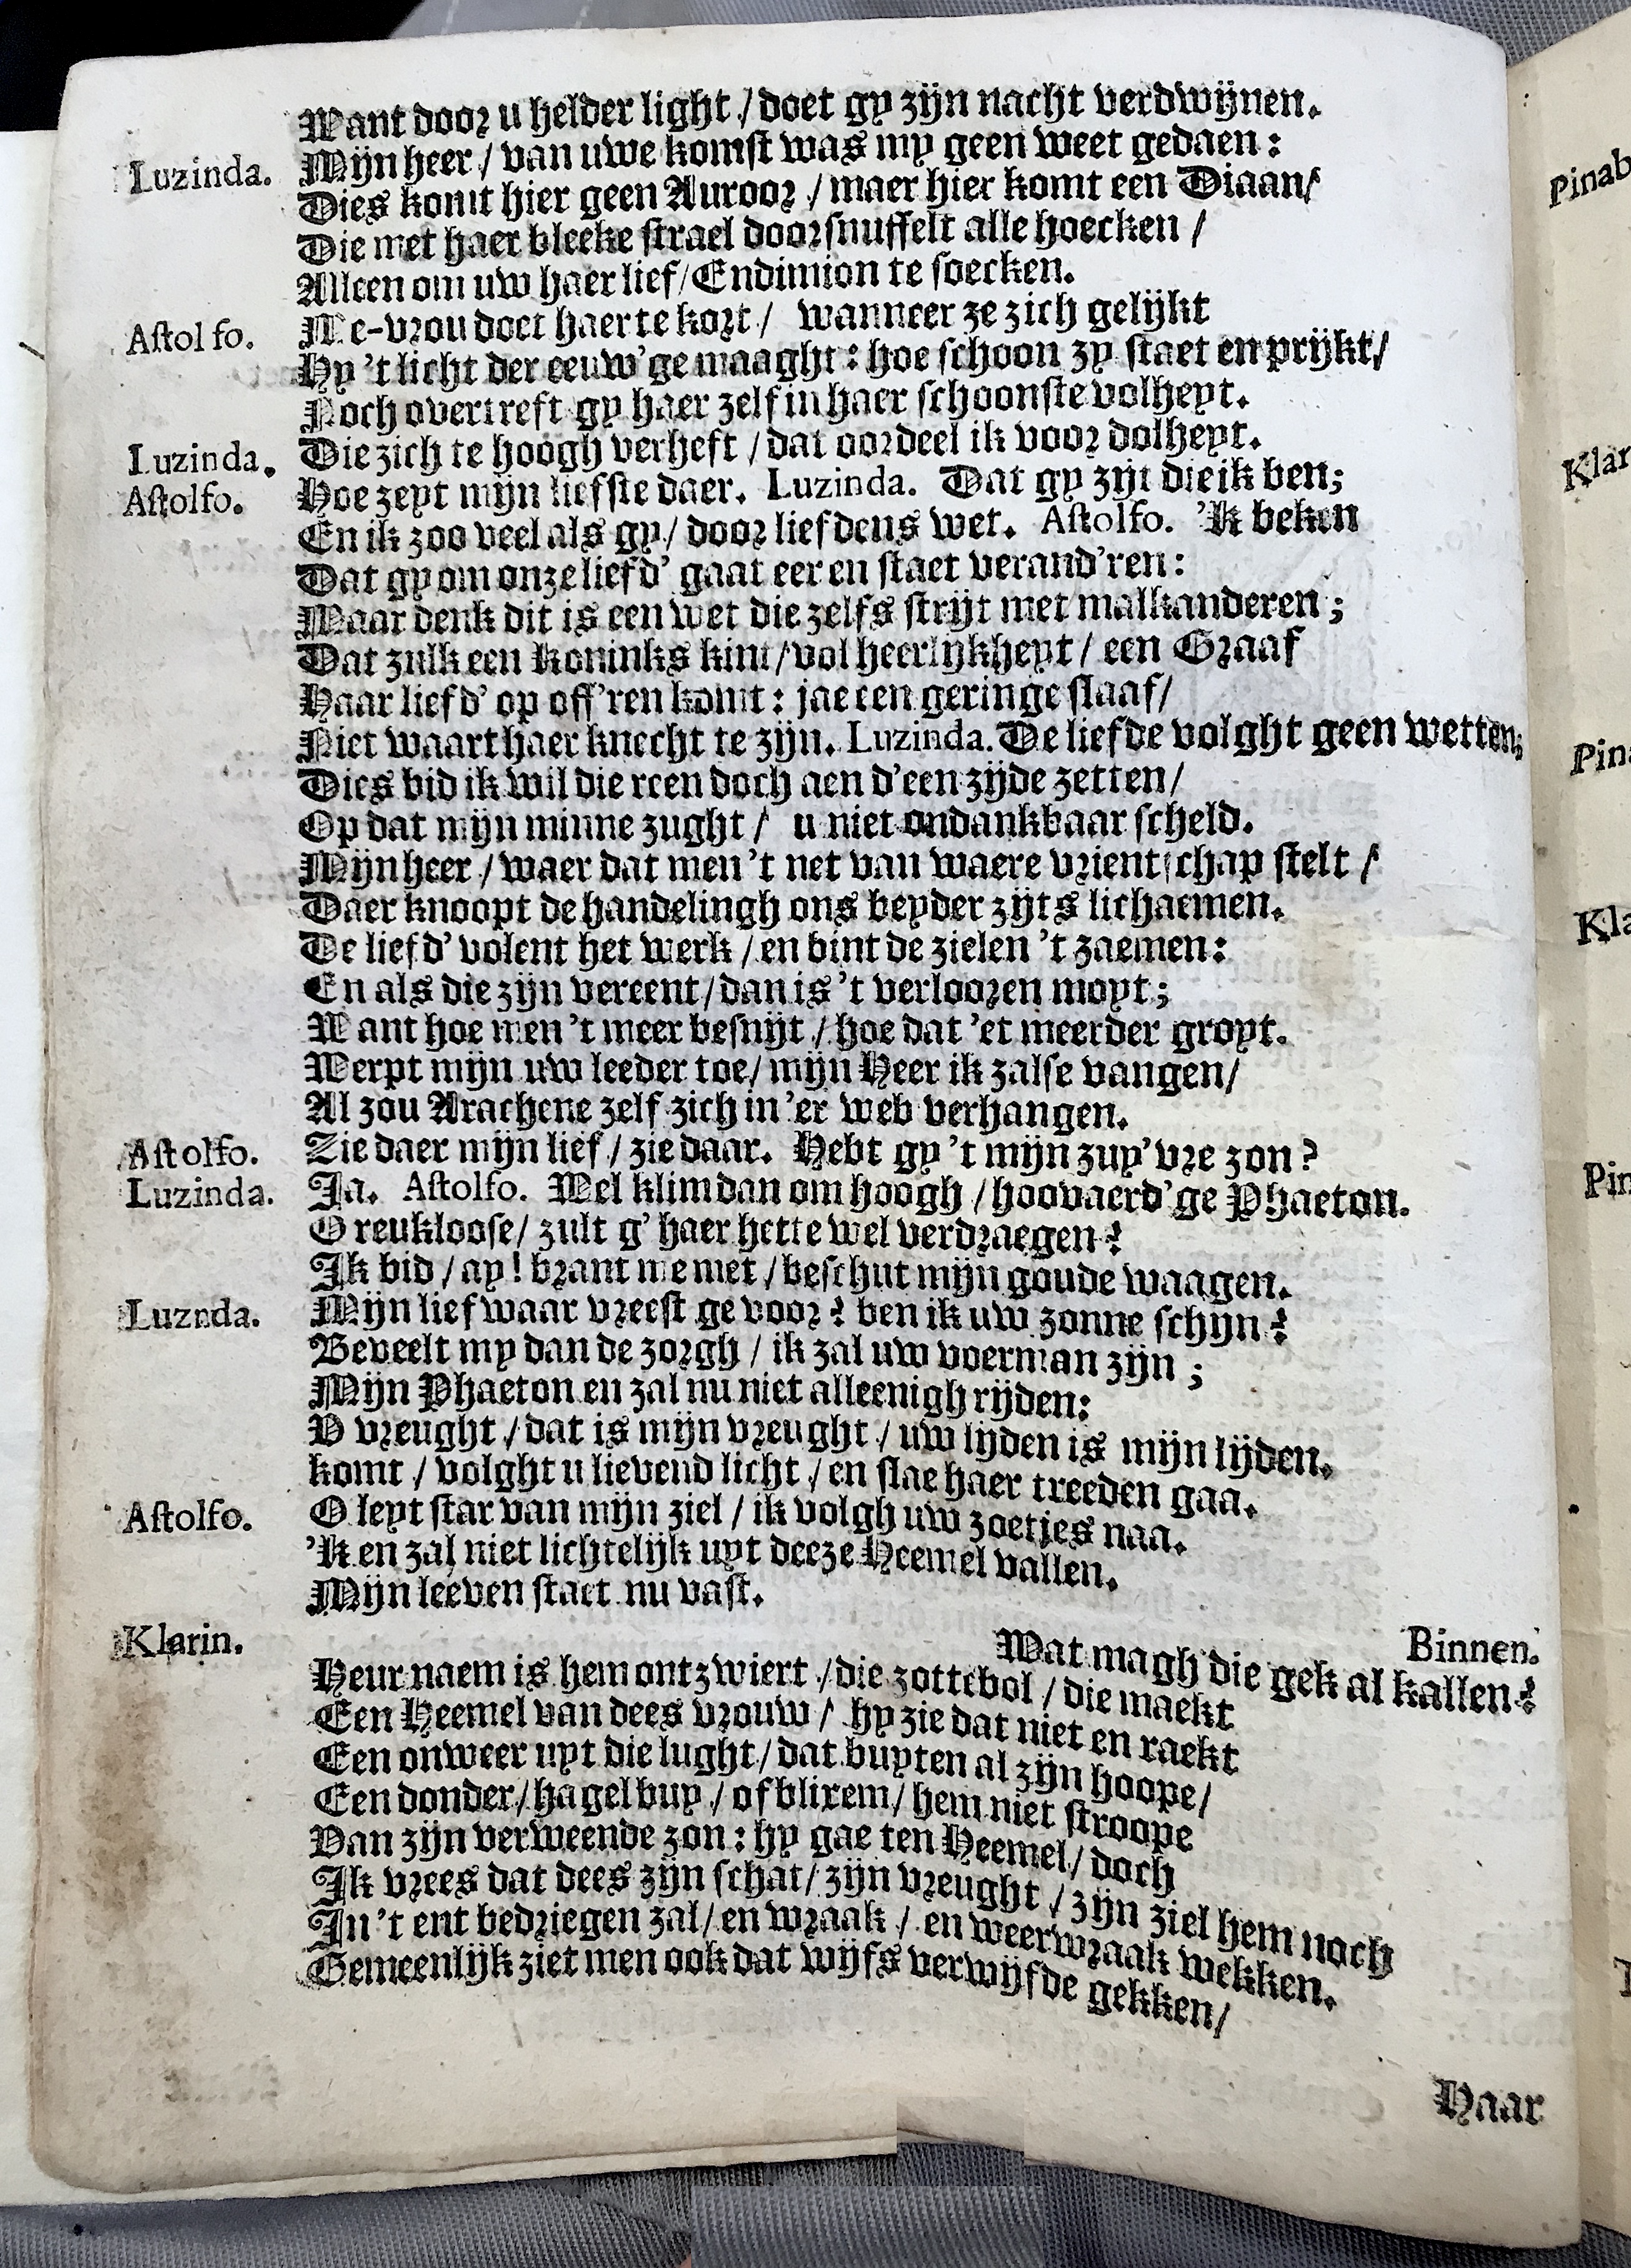 Want door u helder light / doet gy zijn nacht verdwijnen.
Luzinda. Mijn heer / van uwe komst was my geen weet gedaen:
Dies komt hier geen Auroor / maer hier komt een Diaan/
Die met haer bleeke strael doorsnuffelt alle hoecken /
Alleen om uw haer lief / Endimion te soecken.
Astolfo. Me-vrou doet haer te kort / wanneer ze zich gelijkt
By 't licht der eeuw'ge maaght: hoe schoon zy staet en prijkt/
Noch overtreft gy haer zelf in haer schoonste volheyt.
Luzinda. Die zich te hoogh verheft / dat oordeel ik voor dolheyt.
Astolfo. Hoe zeyt mijn liefste daer. Luzinda. Dat gy zijt die ik ben;
En ik zoo veel als gy / door liefdens wet. Astolfo. 'k beken
Dat gy om onze liefd' gaat eer en staet verand'ren:
Maar denk dit is een wet die zelfs strijt met malkanderen;
Dat zulk een Koninks kint / vol heerlijkheyt / een Graaf
Haar liefd' op off'ren komt: jae een geringe slaaf/
Niet waart haer knecht te zijn. Luzinda. De liefde volght geen wetten;
Dies bid ik wil die reen doch aen d'een zijde zetten/
Op dat mijn minne zught / u niet ondankbaar scheld.
Mijn heer / waer dat men 't net van waere vrientschap stelt /
Daer knoopt de handelingh ons beyder zijts lichaemen.
De liefd' volent het werk / en bint de zielen 't zaemen:
En als die zijn vereent / dan is 't verloozen moyt;
Want hoe men 't meer besnijt / hoe dat 'et meerder groyt.
Werpt mijn uw leeder toe / mijn Heer ik zalse vangen/
Al zou Arachene zelf zich in 'er web verhangen.
Astolfo. Zie daer mijn lief / zie daar. Hebt gy 't mijn zuy'vre zon?
Luzinda. Ja. Astolfo. Wel klim dan om hoogh / hoovaerd'ge Phaeton.
O reukloose / zult g' haer hette wel verdraegen?
Ik bid / ay! brant me niet / beschut mijn goude waagen.
Luznda. Mijn lief waar vreest ge voor? ben ik uw zonne schyn?
Beveelt my dan de zorgh / ik zal uw voerman zijn;
Mijn Phaeton en zal nu niet alleenigh rijden:
V vreught / dat is mijn vreught / uw lijden is mijn lijden.
komt / volght u lievend licht / en slae haer treeden gaa.
Astolfo. O leyt star van mijn ziel / ik volgh uw zoetjes naa.
'k en zal niet lichtelijk uyt deeze Heemel vallen.
Mijn leeven staet nu vast.
Binnen.
Klarin. Wat magh die gek al kallen?
Heur naem is hem ontzwiert / die zottebol / die maekt
Een Heemel van dees vrouw / hy zie dat niet en raekt
Een onweer uyt die lught / dat buyten al zijn hoope/
Een donder / hagelbuy / of blixem / hem niet stroope
Van zijn verweende zon: hy gae ten Heemel / doch
Ik vrees dat dees zijn schat / zijn vreught / zijn ziel hem noch
In 't ent bedriegen zal / en wraak / en weerwraak wekken.
Gemeenlijk ziet men ook dat wijfs verwijfde gekken/
Haar